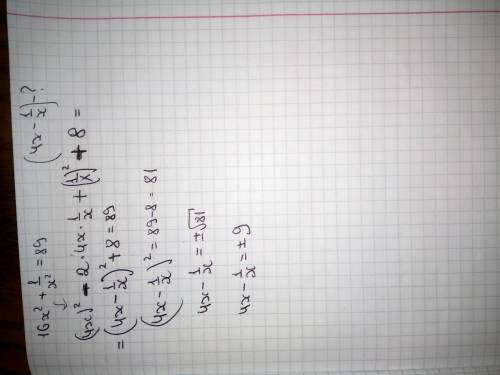 16x² + 1/x² = 89 (4x - 1/x) - ?
(4x)² - 2·4x·1/x + (1/x)² + 8 =
= (4x - 1/x)² + 8 = 89
(4x - 1/x)² = 89 - 8 = 81
4x - 1/x = ±√81
4x - 1/x = ± 9